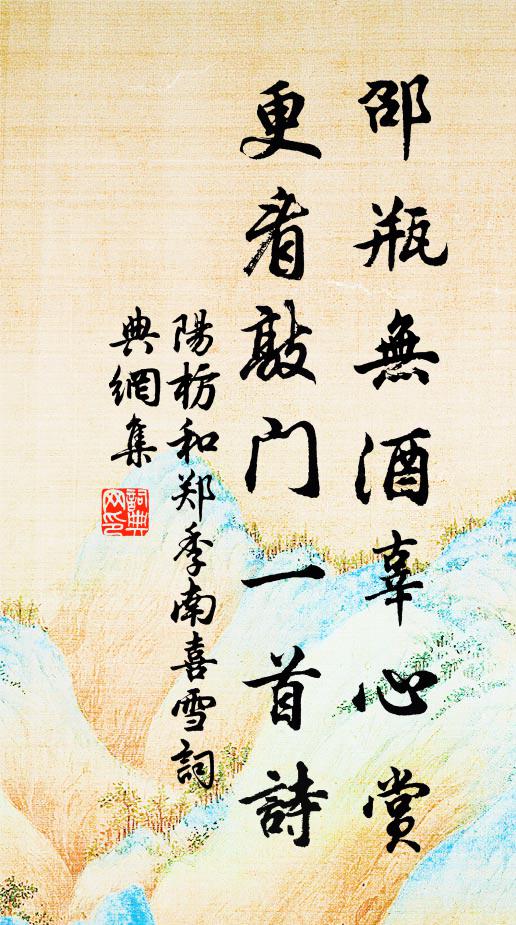 邵瓶無酒辜心賞
更看敲门一首詩
陽枋和郑季南喜雪詞
典網集
詞典
网印